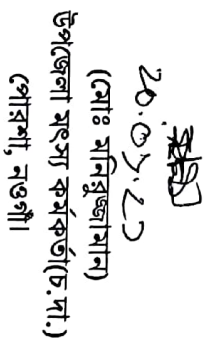 ২০.০১.২১
(মোঃ মনিরুজ্জামান)
উপজেলা মৎস্য কর্মকর্তা(চ.দা.)
পোরশা, নওগাঁ।